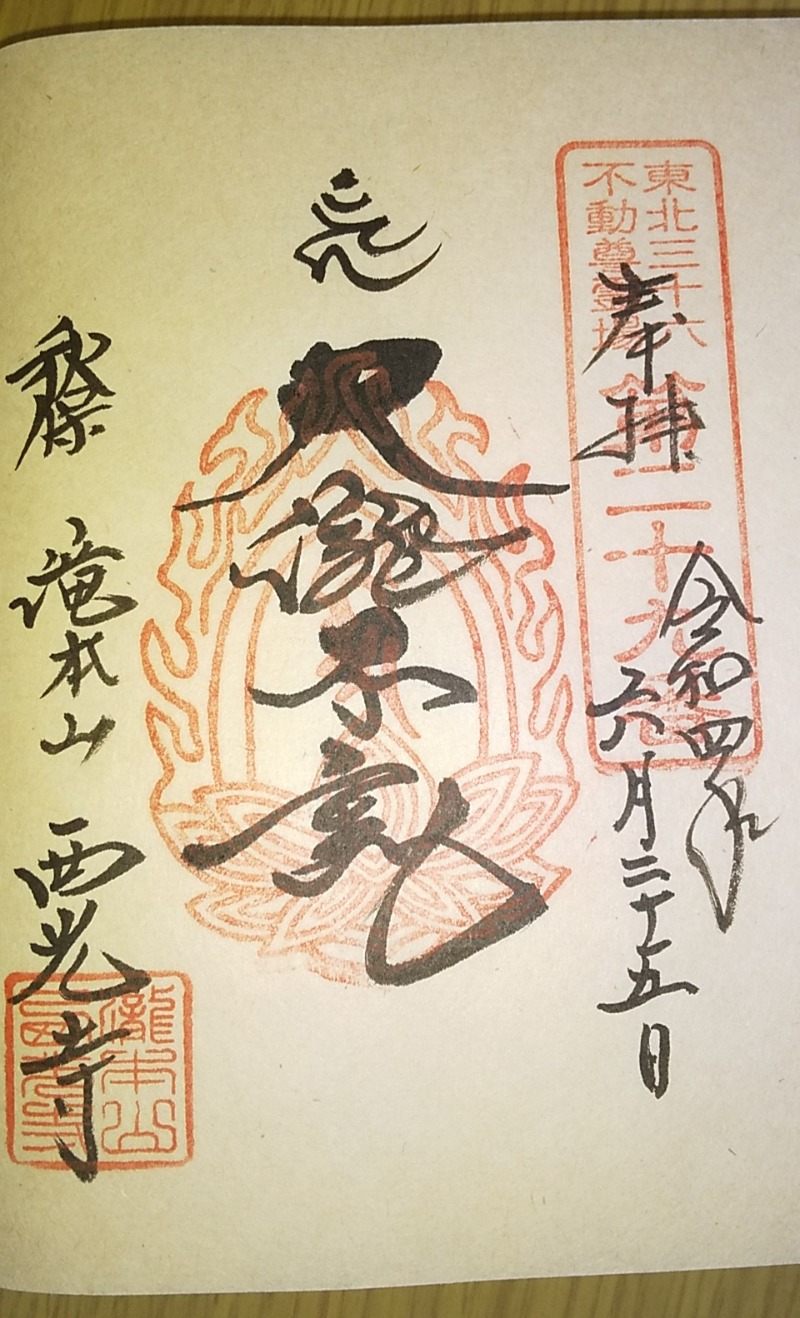 東北三十六
不動尊霊場
第二十九番
奉拝
令和四年
六月二十五日
大瀧不動
秋保 滝本山 西光寺
瀧本山
西光寺